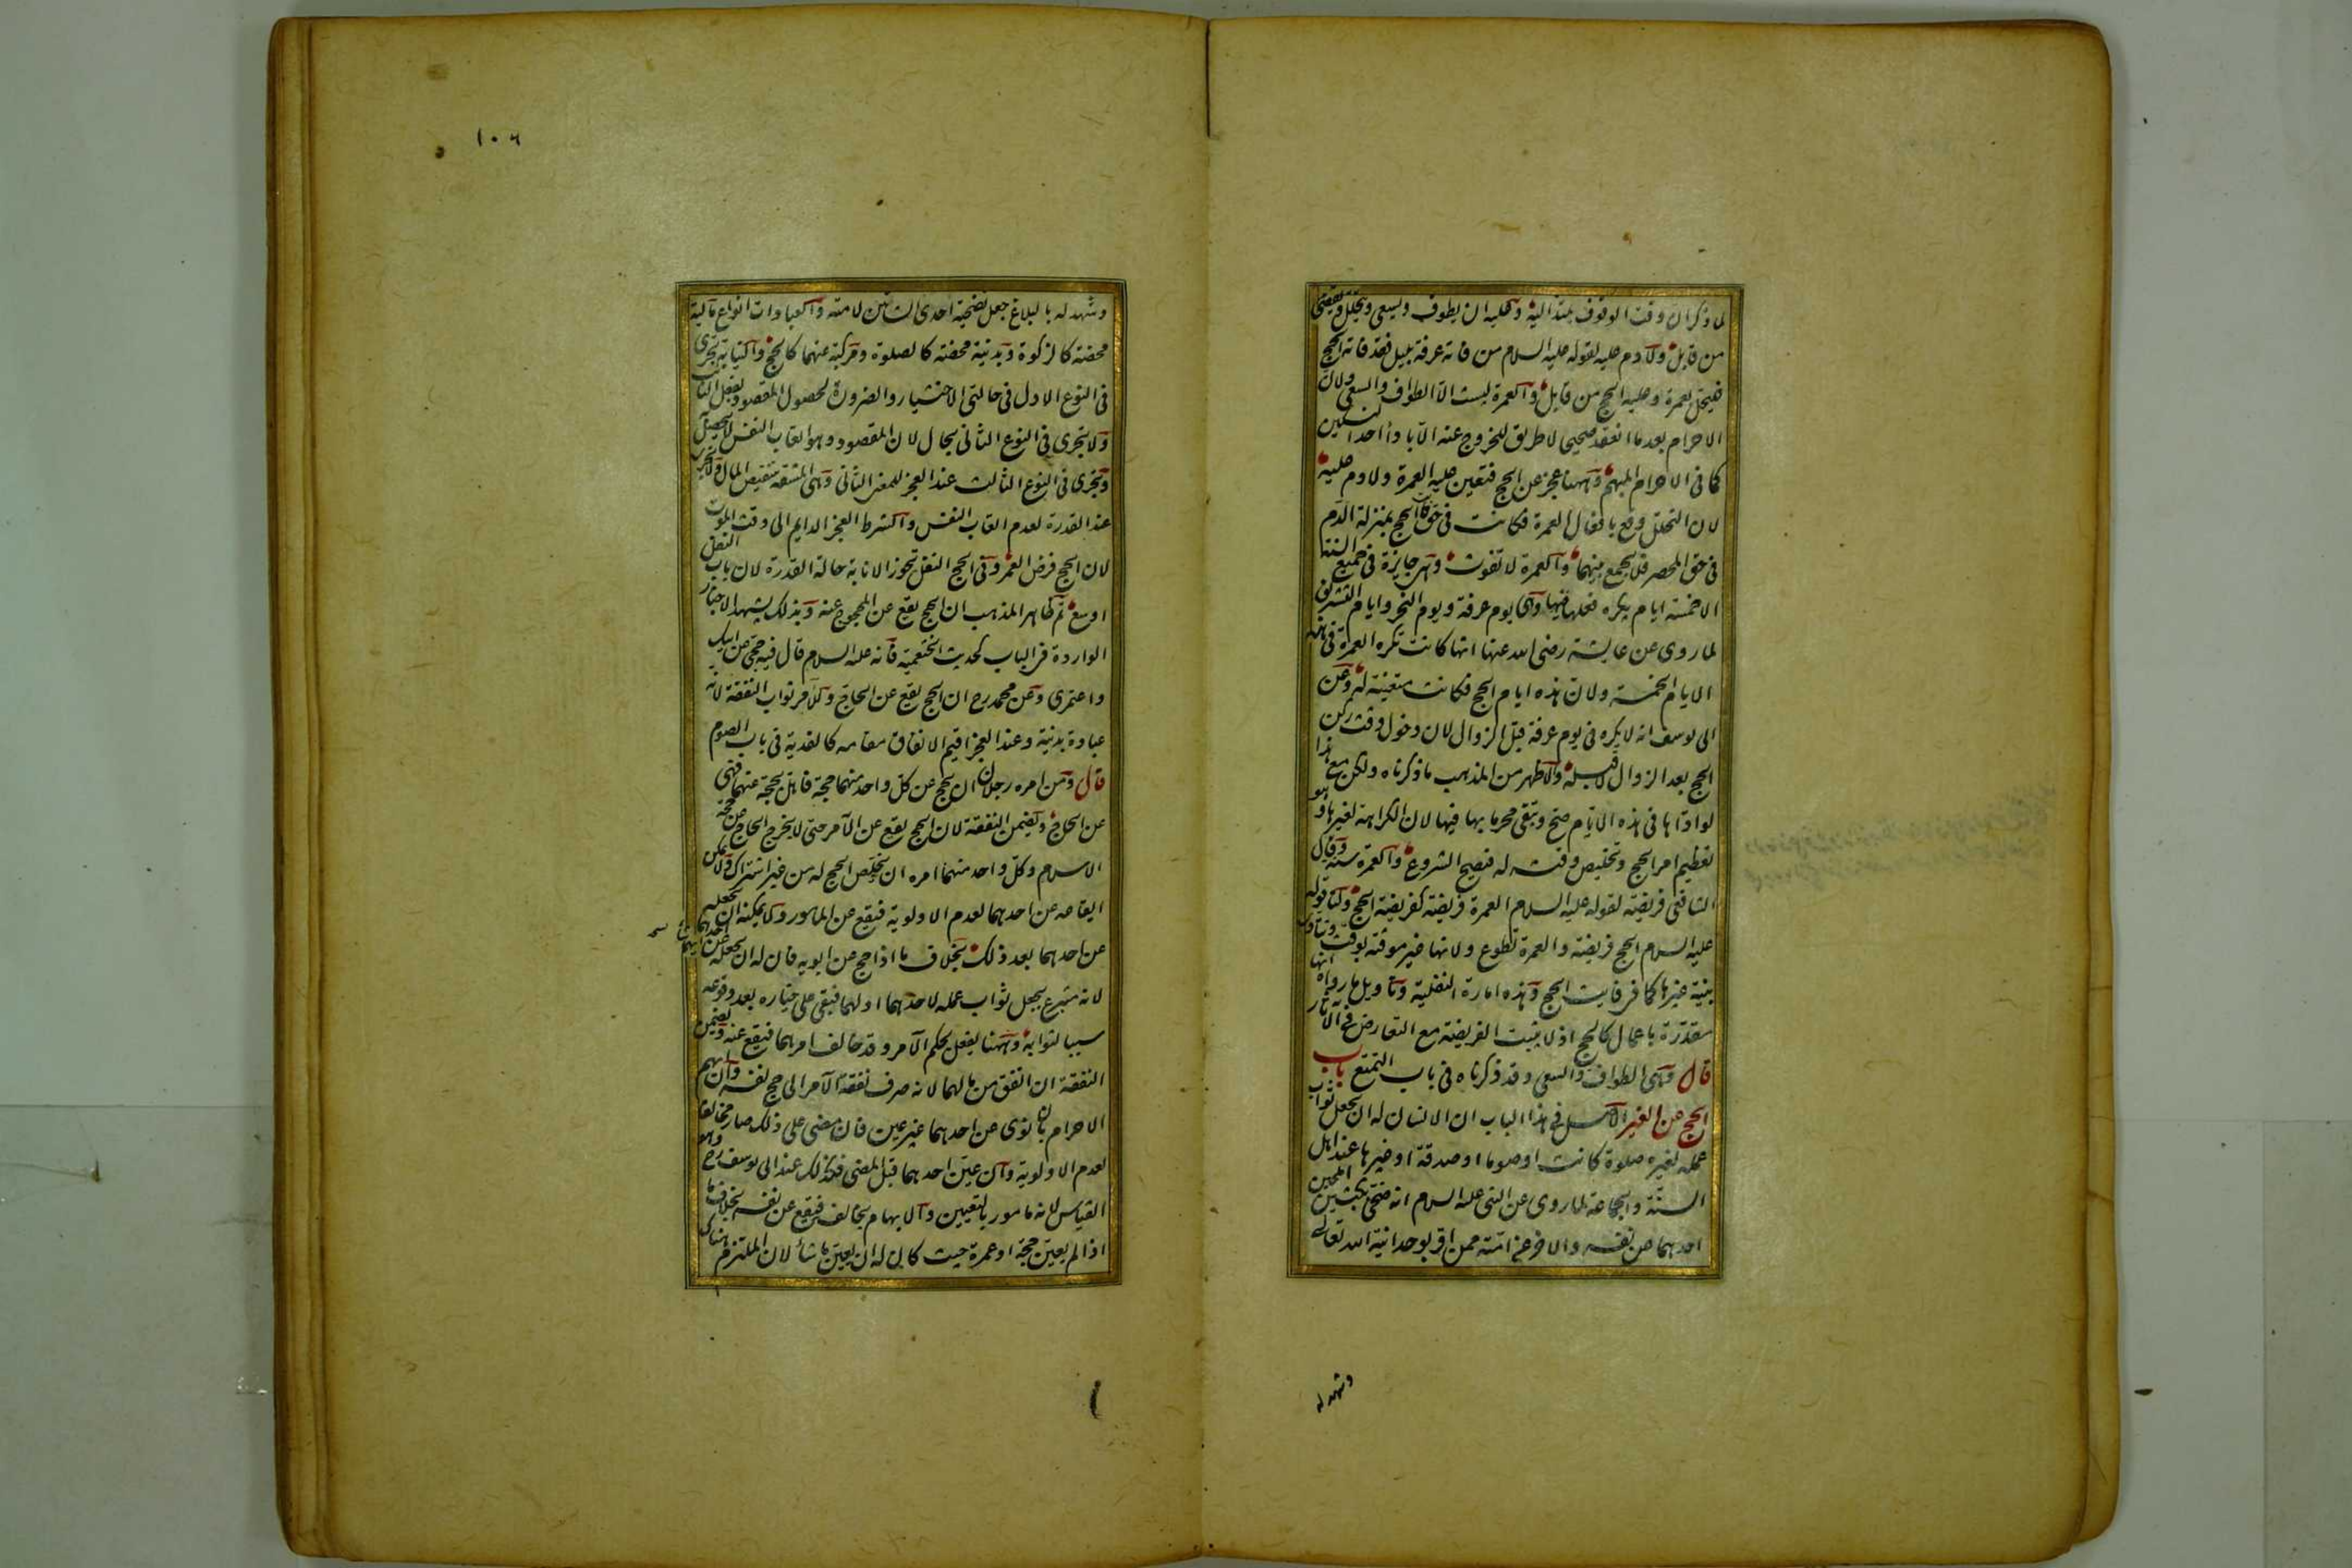 لما ذكرنا ان وقت الوقوف يمتد اليه وعليه ان يطوف ويسعى ويتحلل ويقضى
من قابل ولا دم عليه لقوله عليه السلام من فاته عرفة بليل فقد فاته الحج
فليتحل بعمرة وعليه الحج من قابل والعمرة ليست الا الطواف والسعى ولان
الاحرام بعد ما انعقد صحيحا لا طريق للخروج عنه الا باداء احد النسكين
كما فى الاحرام المبهم وههنا عجز عن الحج فتعين عليه العمرة ولا دم عليه
لان التحلل وقع بافعال العمرة فكانت فى حق فائت الحج بمنزلة الدم
فى حق المحصر فلا يجمع بينهما والعمرة لا تفوت وهى جايزة فى جميع السنة
الا خمسة ايام يكره فعلها فيها وهى يوم عرفة ويوم النحر وايام التشريق
لما روى عن عايشة رضى الله عنها انها كانت تكره العمرة فى هذه
الايام الخمسة ولان هذه ايام الحج فكانت متعينة له وعن
ابى يوسف انه لا يكره فى يوم عرفة قبل الزوال لان دخول وقت ركن
الحج بعد الزوال لا قبله والاظهر من المذهب ما ذكرناه ولكن مع هذا
لو اداها فى هذه الايام صح ويبقى محرما بها فيها لان الكراهة لغيرها وهو
تعظيم امر الحج وتخليص وقته له فيصح الشروع والعمرة سنة وقال
الشافعى فريضة لقوله عليه السلام العمرة فريضة كفريضة الحج ولنا قوله
عليه السلام الحج فريضة والعمرة تطوع ولانها غير موقتة بوقت وتتادى
بنية غيرها كما فى فايت الحج وهذه امارة النفلية وتاويل ما رواه انها
مقدرة باعمال كالحج اذ لا يثبت الفريضة مع التعارض فى الآثار
قال وهى الطواف والسعى وقد ذكرناه فى باب التمتع باب
الحج عن الغير الاصل فى هذا الباب ان الانسان له ان يجعل ثواب
عمله لغيره صلوة كانت او صوما او صدقة او غيرها عند اهل
السنة والجماعة لما روى عن النبى عليه السلام انه ضحى بكبشين املحين
احدهما عن نفسه والاخر عن امته ممن اقر بوحدانية الله تعالى
وشهد له
١٠٦
وشهد له بالبلاغ جعل تضحية احدى الشاتين لامته والعبادات انواع مالية
محضة كالزكوة وبدنية محضة كالصلوة ومركبة عنهما كالحج والنيابة تجرى
فى النوع الاول فى حالتى الاختيار والضرورة لحصول المقصود بفعل النائب
ولا يجرى فى النوع الثانى بحال لان المقصود وهو اتعاب النفس لا يحصل به
وتجرى فى النوع الثالث عند العجز للمعنى الثانى وهى المشقة بتنقيص المال ولا تجرى
عند القدرة لعدم اتعاب النفس والشرط العجز الدايم الى وقت الموت
لان الحج فرض العمر وفى الحج النفل تجوز الانابة حالة القدرة لان باب النفل
اوسع ثم ظاهر المذهب ان الحج يقع عن المحجوج عنه وبذلك يشهد الاخبار
الواردة فى الباب كحديث الخثعمية فانه عليه السلام قال فيه حجى عن ابيك
واعتمرى وعن محمد رح ان الحج يقع عن الحاج وللآمر ثواب النفقة لانه
عبادة بدنية وعند العجز اقيم الانفاق مقامه كالفدية فى باب الصوم
قال ومن امره رجلان ان يحج عن كل واحد منهما حجة فاهل بحجة عنهما فهى
عن الحاج ويضمن النفقة لان الحج يقع عن الآمر حتى لا يخرج الحاج عن حجة
الاسلام وكل واحد منهما امره ان يخلص الحج له من غير اشتراك ولا يمكن
ايقاعه عن احدهما لعدم الاولوية فيقع عن المامور ولا يمكنه ان يجعله
عن احدهما بعد ذلك بخلاف ما اذا حج عن ابويه فان له ان يجعله عن ايهما
لانه متبرع بجعل ثواب عمله لاحدهما او لهما فيبقى على خياره بعد وقوعه
سببا لثوابه وههنا يفعل بحكم الآمر وقد خالف امرهما فيقع عنه ويضمن
النفقة ان انفق من مالهما لانه صرف نفقة الآمر الى حج نفسه وان ابهم
الاحرام بان نوى عن احدهما غير عين فان مضى على ذلك صار مخالفا
لعدم الاولوية وان عين احدهما قبل المضى فكذلك عند ابى يوسف رح وهو
القياس لانه مامور بالتعيين والابهام يخالفه فيقع عن نفسه بخلاف ما
اذا لم يعين حجة او عمرة حيث كان له ان يعين ما شاء لان الملتزم هناك